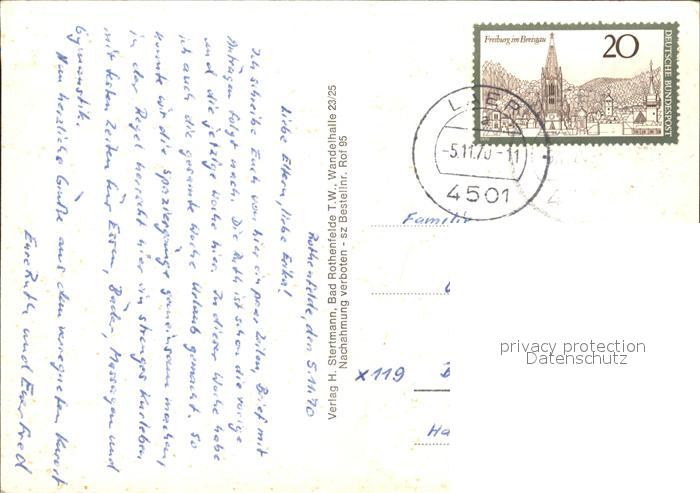 Rothenfelde, den 5.11.70
Liebe Eltern, liebe Erika!
Ich schreibe Euch von hier ein paar Zeilen, Brief mit
Anlagen folgt nach. Die Ruth ist schon die vorige
und die jetzige Woche hier. In dieser Woche habe
ich auch die gesamte Woche Urlaub gemacht. So
konnte wir die Spaziergänge gemeinsam machen,
in der Regel herrscht hier ein strenges Kurleben,
mit festen Zeiten für Essen, Bäder, Massagen und
Gymnastik.
Nun herzliche Grüße aus dem verregneten Kurort
Eure Ruth und Euer Fred
Verlag H. Stertmann, Bad Rothenfelde T.W., Wandelhalle 23/25
Nachahmung verboten - sz Bestellnr. Rof 95
Freiburg im Breisgau
20
DEUTSCHE BUNDESPOST
LAER
a
-5.11.70-11
4501
Familie
x119
Ha
privacy protection
Datenschutz